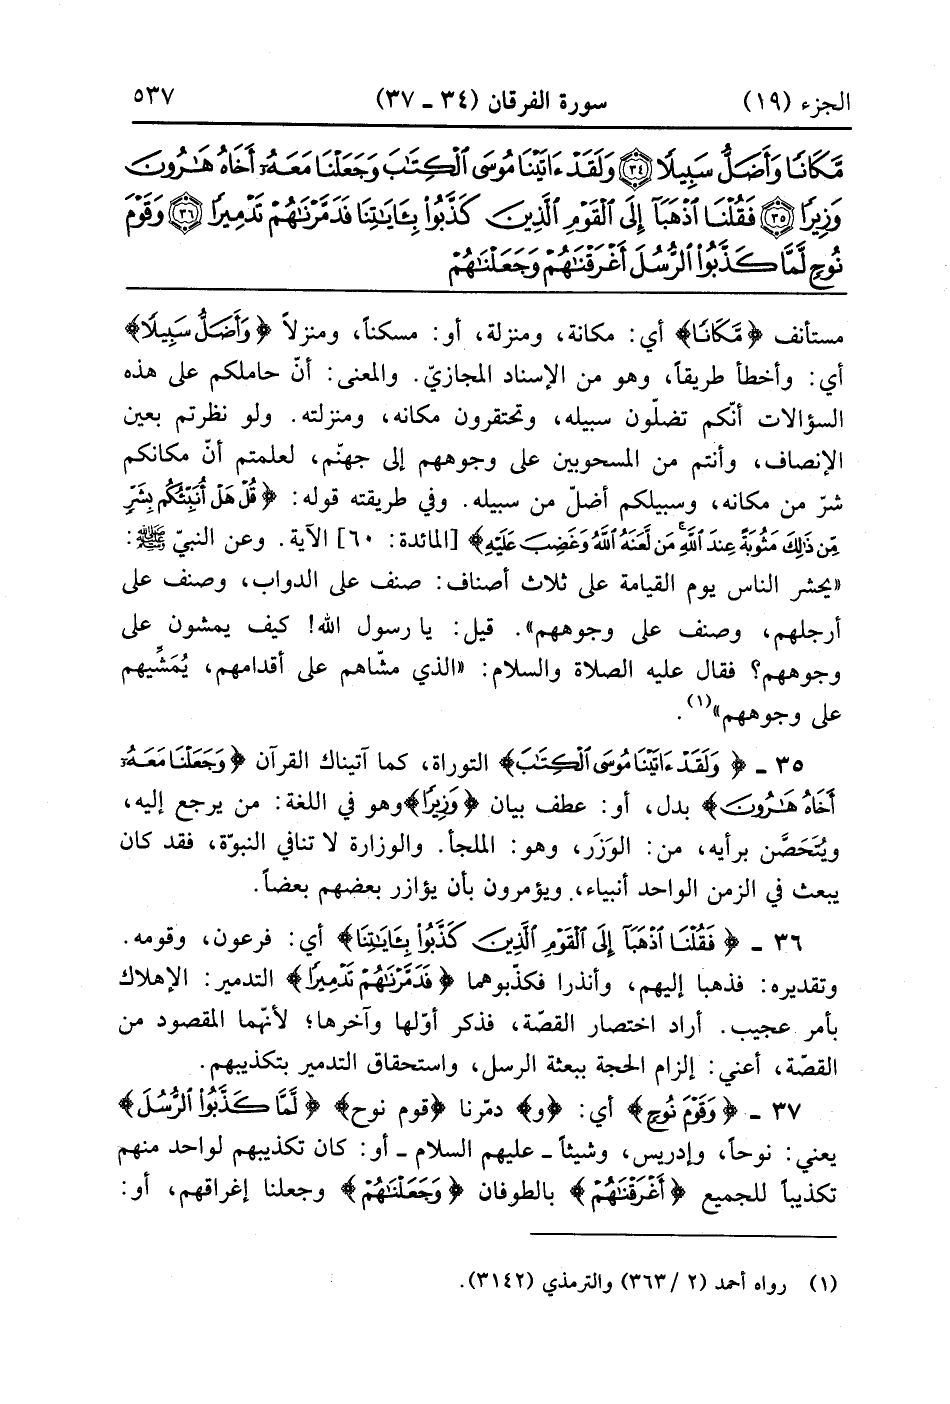 الجزء (١٩) سورة الفرقان (٣٤ - ٣٧) ٥٣٧
مَّكَانًا وَأَضَلُّ سَبِيلًا ٣٤ وَلَقَدْ ءَاتَيْنَا مُوسَى ٱلْكِتَٰبَ وَجَعَلْنَا مَعَهُۥٓ أَخَاهُ هَٰرُونَ
وَزِيرًا ٣٥ فَقُلْنَا ٱذْهَبَآ إِلَى ٱلْقَوْمِ ٱلَّذِينَ كَذَّبُوا۟ بِـَٔايَٰتِنَا فَدَمَّرْنَٰهُمْ تَدْمِيرًا ٣٦ وَقَوْمَ
نُوحٍ لَّمَّا كَذَّبُوا۟ ٱلرُّسُلَ أَغْرَقْنَٰهُمْ وَجَعَلْنَٰهُمْ
مستأنف ﴿مَّكَانًا﴾ أي: مكانة، ومنزلة، أو: مسكناً، ومنزلاً ﴿وَأَضَلُّ سَبِيلًا﴾
أي: وأخطأ طريقاً، وهو من الإسناد المجازيّ. والمعنى: أنّ حاملكم على هذه
السؤالات أنّكم تضلّون سبيله، وتحتقرون مكانه، ومنزلته. ولو نظرتم بعين
الإنصاف، وأنتم من المسحوبين على وجوههم إلى جهنّم، لعلمتم أنّ مكانكم
شرّ من مكانه، وسبيلكم أضلّ من سبيله. وفي طريقته قوله: ﴿قُلْ هَلْ أُنَبِّئُكُم بِشَرٍّ
مِّن ذَٰلِكَ مَثُوبَةً عِندَ ٱللَّهِ ۚ مَن لَّعَنَهُ ٱللَّهُ وَغَضِبَ عَلَيْهِ﴾ [المائدة: ٦٠] الآية. وعن النبيّ ﷺ:
«يحشر الناس يوم القيامة على ثلاث أصناف: صنف على الدواب، وصنف على
أرجلهم، وصنف على وجوههم». قيل: يا رسول الله! كيف يمشون على
وجوههم؟ فقال عليه الصلاة والسلام: «الذي مشّاهم على أقدامهم، يُمَشِّيهم
على وجوههم»(١).
٣٥ - ﴿وَلَقَدْ ءَاتَيْنَا مُوسَى ٱلْكِتَٰبَ﴾ التوراة، كما آتيناك القرآن ﴿وَجَعَلْنَا مَعَهُۥٓ
أَخَاهُ هَٰرُونَ﴾ بدل، أو: عطف بيان ﴿وَزِيرًا﴾ وهو في اللغة: من يرجع إليه،
ويُتَحَصَّن برأيه، من: الوَزَر، وهو: الملجأ. والوزارة لا تنافي النبوّة، فقد كان
يبعث في الزمن الواحد أنبياء، ويؤمرون بأن يؤازر بعضهم بعضاً.
٣٦ - ﴿فَقُلْنَا ٱذْهَبَآ إِلَى ٱلْقَوْمِ ٱلَّذِينَ كَذَّبُوا۟ بِـَٔايَٰتِنَا﴾ أي: فرعون، وقومه.
وتقديره: فذهبا إليهم، وأنذرا فكذّبوهما ﴿فَدَمَّرْنَٰهُمْ تَدْمِيرًا﴾ التدمير: الإهلاك
بأمر عجيب. أراد اختصار القصّة، فذكر أوّلها وآخرها؛ لأنّهما المقصود من
القصّة، أعني: إلزام الحجة ببعثة الرسل، واستحقاق التدمير بتكذيبهم.
٣٧ - ﴿وَقَوْمَ نُوحٍ﴾ أي: ﴿و﴾ دمّرنا ﴿قوم نوح﴾ ﴿لَّمَّا كَذَّبُوا۟ ٱلرُّسُلَ﴾
يعني: نوحاً، وإدريس، وشيثاً - عليهم السلام - أو: كان تكذيبهم لواحد منهم
تكذيباً للجميع ﴿أَغْرَقْنَٰهُمْ﴾ بالطوفان ﴿وَجَعَلْنَٰهُمْ﴾ وجعلنا إغراقهم، أو:
(١) رواه أحمد (٢/ ٣٦٣) والترمذي (٣١٤٢).